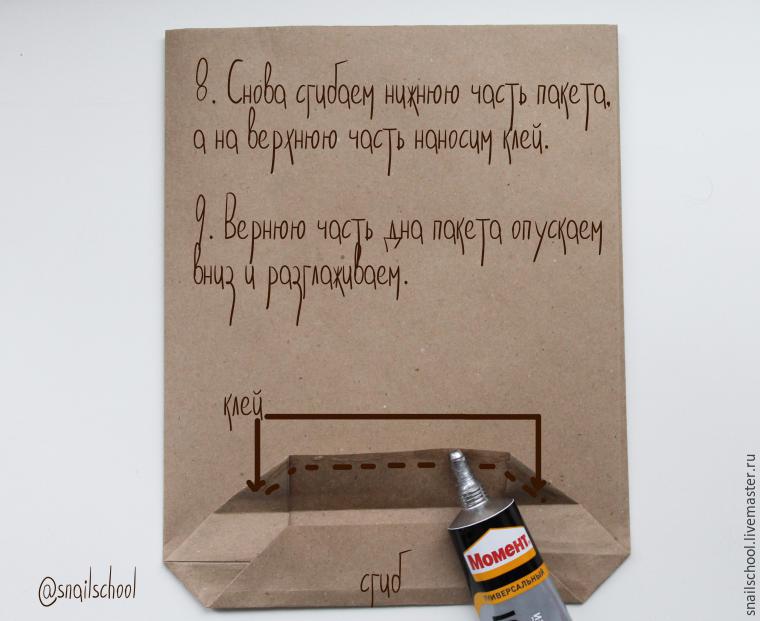 8. Снова сгибаем нижнюю часть пакета,
а на верхнюю часть наносим клей.
9. Вернюю часть дна пакета опускаем
вниз и разглаживаем.
клей
Момент
УНИВЕРСАЛЬНЫЙ
сгиб
@snailschool
snailschool.livemaster.ru